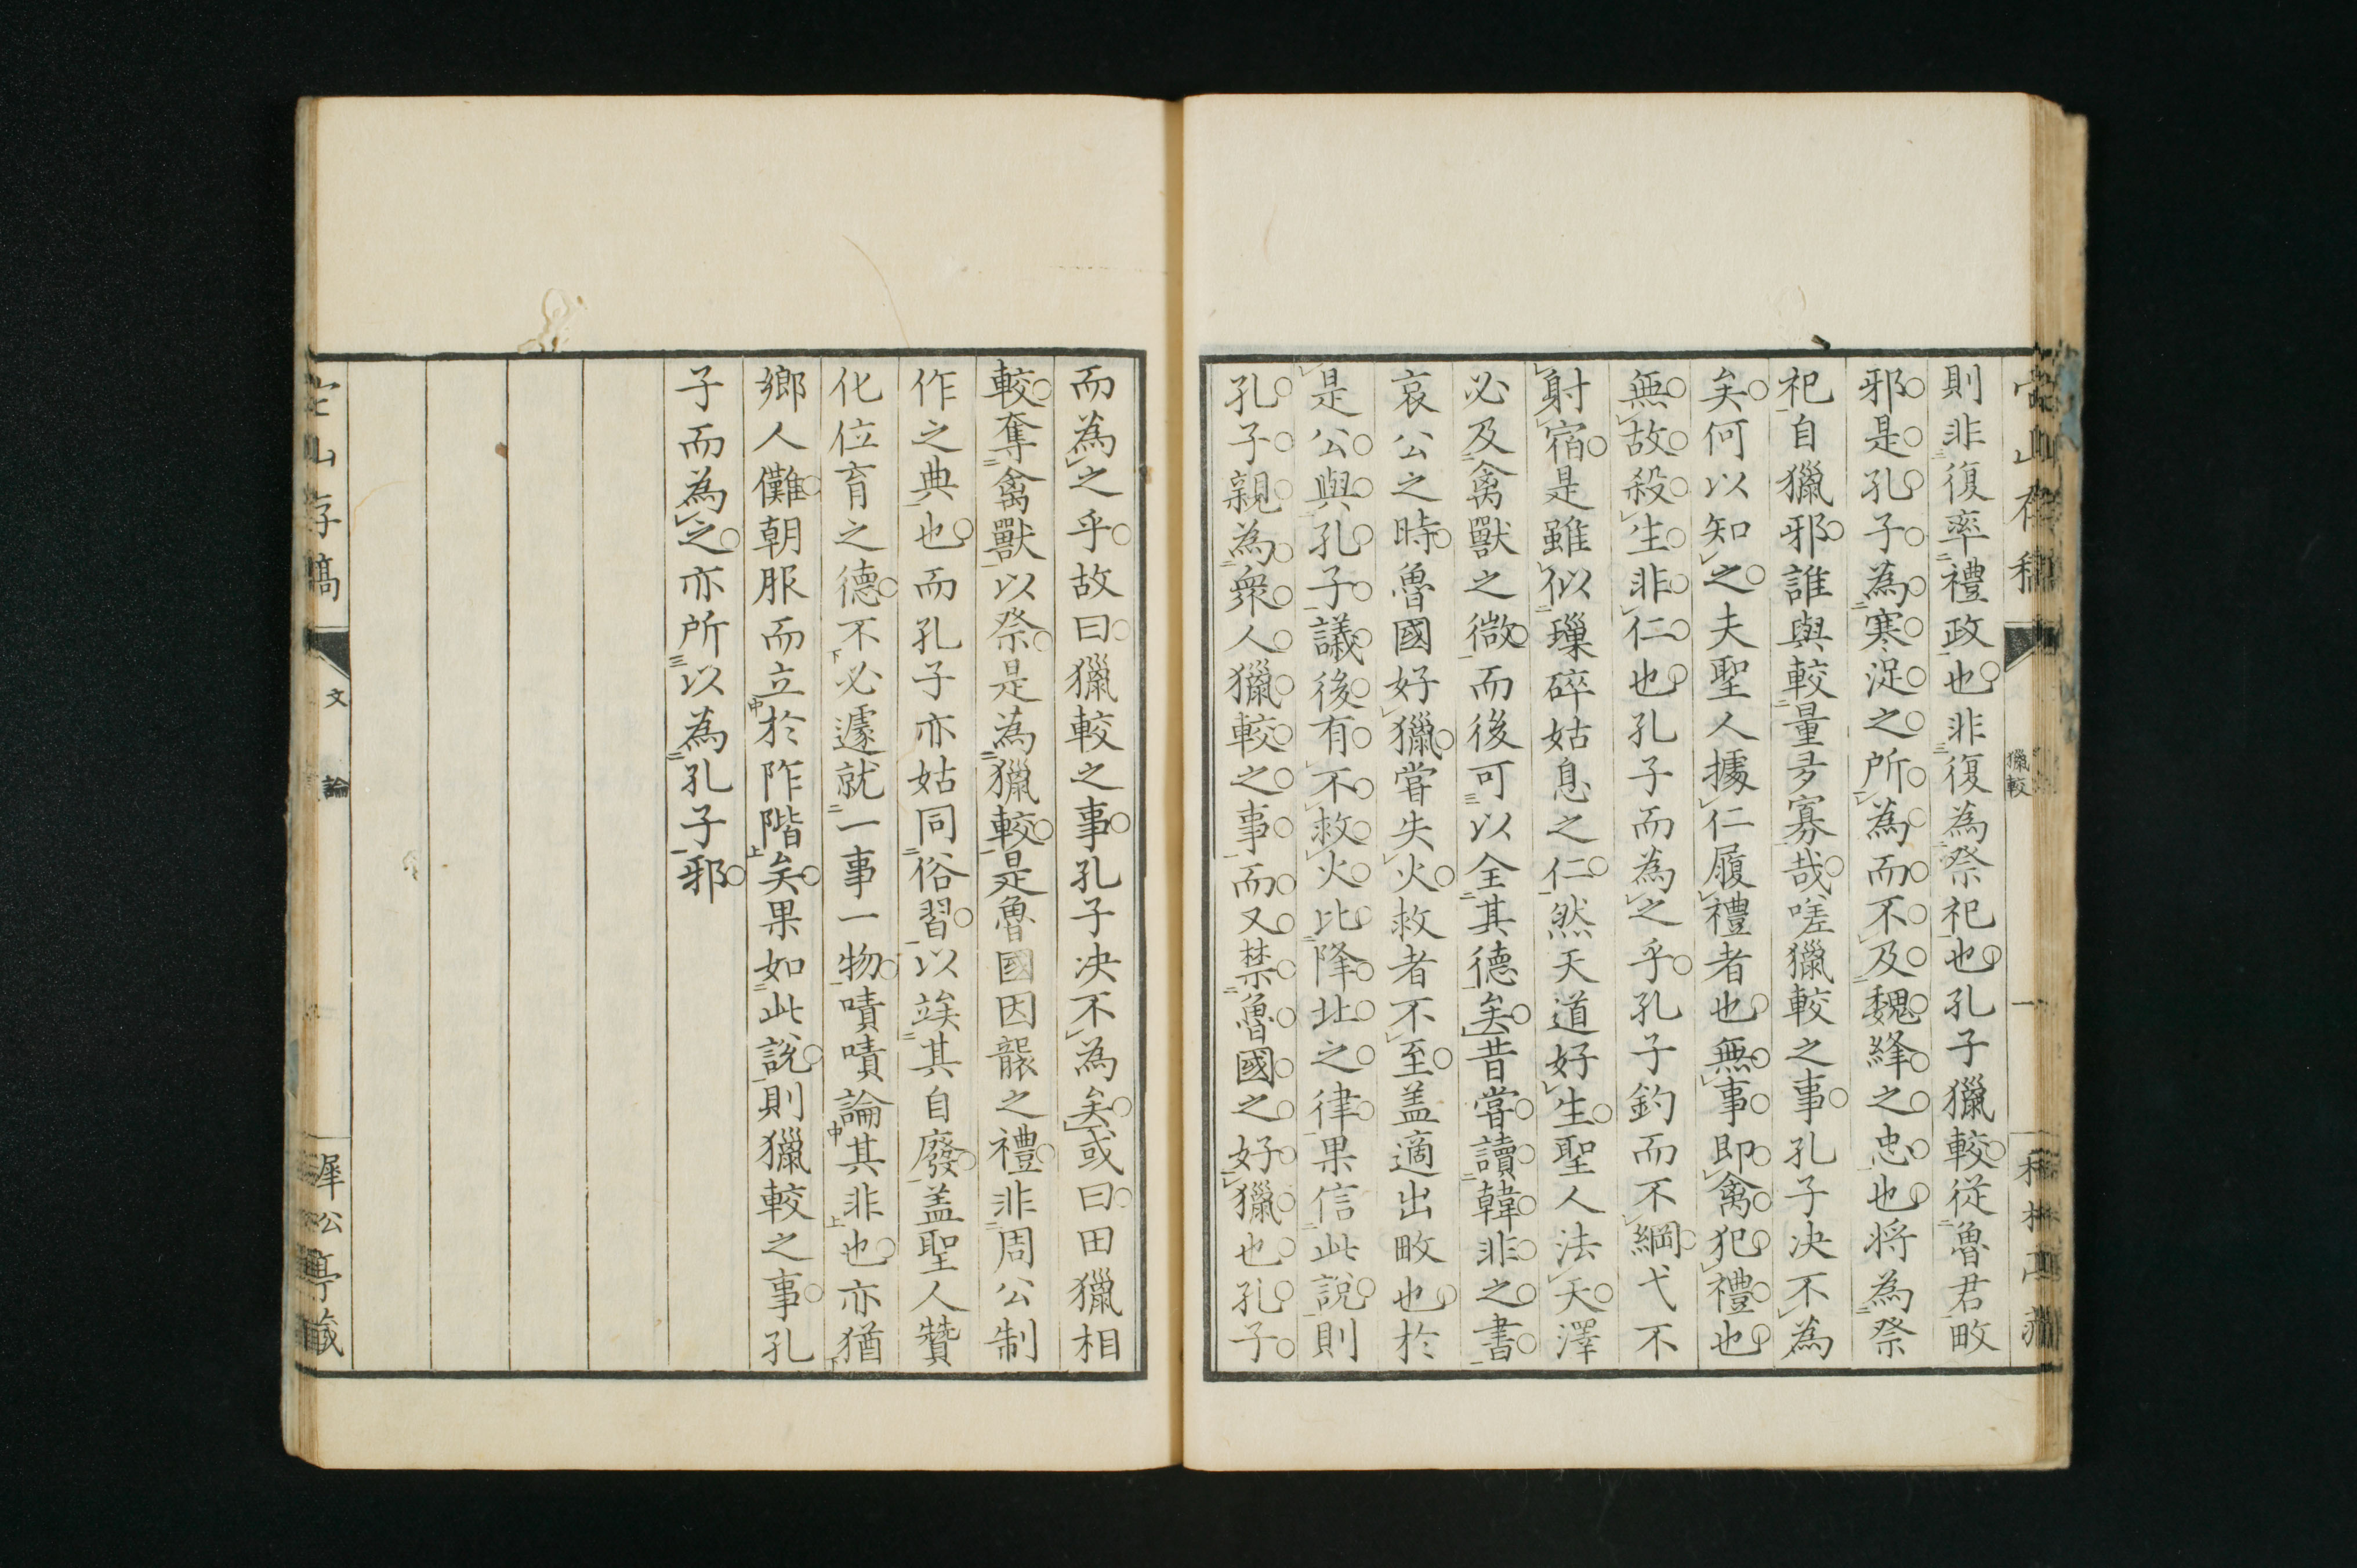 則非復率禮政也非復為祭祀也孔子獵較從魯君畋
邪是孔子為寒浞之所為而不及魏絳之忠也将為祭
祀自獵邪誰與較量多寡哉嗟獵較之事孔子决不為
矣何以知之夫聖人據仁履禮者也無事即禽犯禮也
無故殺生非仁也孔子而為之乎孔子釣而不綱弋不
射宿是雖似璅碎姑息之仁然天道好生聖人法天澤
必及禽獸之微而後可以全其德矣昔嘗讀韓非之書
哀公之時魯國好獵嘗失火救者不至盖適出畋也於
是公與孔子議後有不救火比降北之律果信此說則
孔子親為衆人獵較之事而又禁魯國之好獵也孔子
獵較
一
而為之乎故曰獵較之事孔子决不為矣或曰田獵相
較奪禽獸以祭是為獵較是魯國因襲之禮非周公制
作之典也而孔子亦姑同俗習以竢其自廢盖聖人贊
化位育之德不必遽就一事一物嘖嘖論其非也亦猶
鄉人儺朝服而立於阼階矣果如此說則獵較之事孔
子而為之亦所以為孔子邪
山存稿
文
論
犀公亭藏